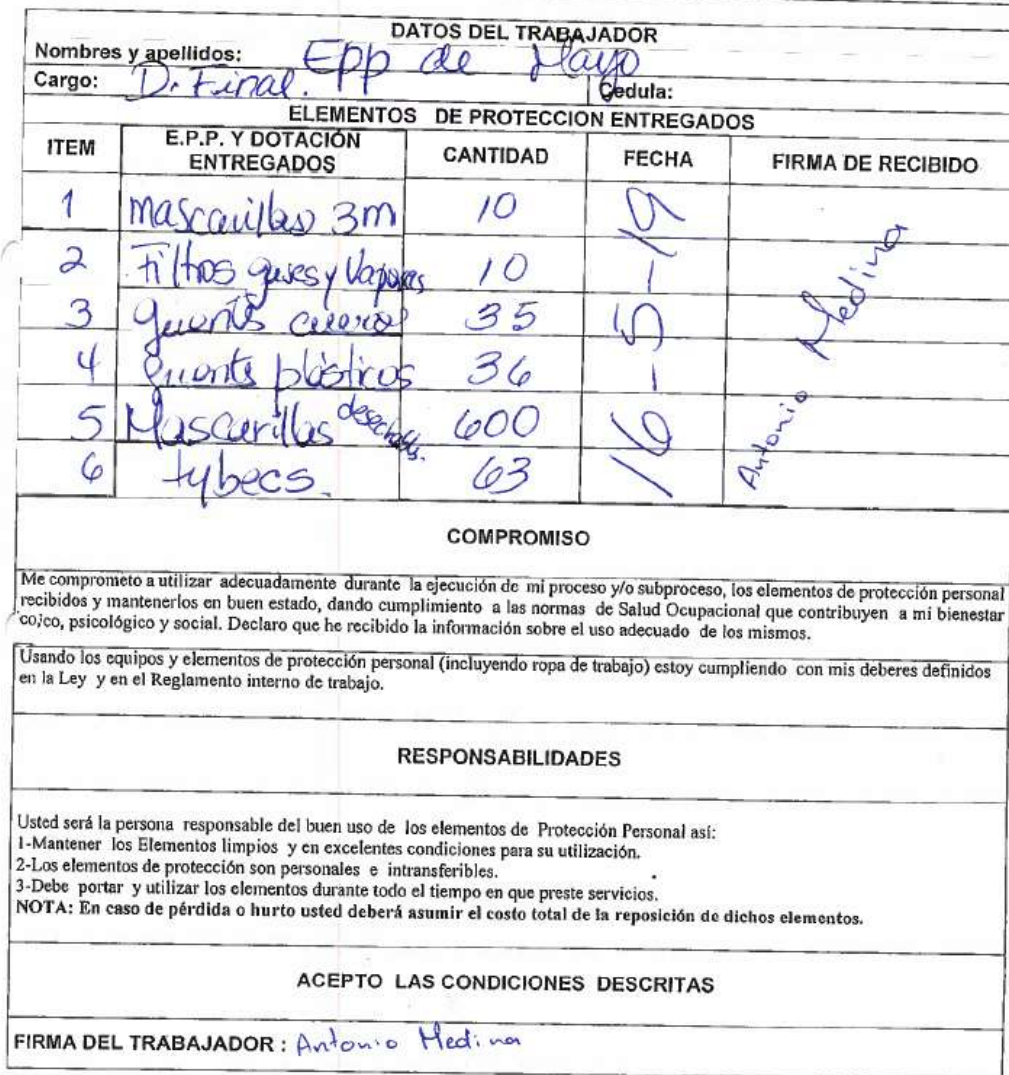 DATOS DEL TRABAJADOR
Nombres y apellidos: Epp de Mayo
Cargo: D. Final. Cedula:
ELEMENTOS DE PROTECCION ENTREGADOS
ITEM E.P.P. Y DOTACIÓN ENTREGADOS CANTIDAD FECHA FIRMA DE RECIBIDO
1 mascarillas 3m 10
2 Filtros gases y Vapores 10
3 guents cueros 35
4 guents plásticos 36
5 Mascarillas desechables. 600
6 tybecs. 63
16-5-19
Antonio Medina
COMPROMISO
Me comprometo a utilizar adecuadamente durante la ejecución de mi proceso y/o subproceso, los elementos de protección personal
recibidos y mantenerlos en buen estado, dando cumplimiento a las normas de Salud Ocupacional que contribuyen a mi bienestar
co;co, psicológico y social. Declaro que he recibido la información sobre el uso adecuado de los mismos.
Usando los equipos y elementos de protección personal (incluyendo ropa de trabajo) estoy cumpliendo con mis deberes definidos
en la Ley y en el Reglamento interno de trabajo.
RESPONSABILIDADES
Usted será la persona responsable del buen uso de los elementos de Protección Personal así:
1-Mantener los Elementos limpios y en excelentes condiciones para su utilización.
2-Los elementos de protección son personales e intransferibles.
3-Debe portar y utilizar los elementos durante todo el tiempo en que preste servicios.
NOTA: En caso de pérdida o hurto usted deberá asumir el costo total de la reposición de dichos elementos.
ACEPTO LAS CONDICIONES DESCRITAS
FIRMA DEL TRABAJADOR : Antonio Medina